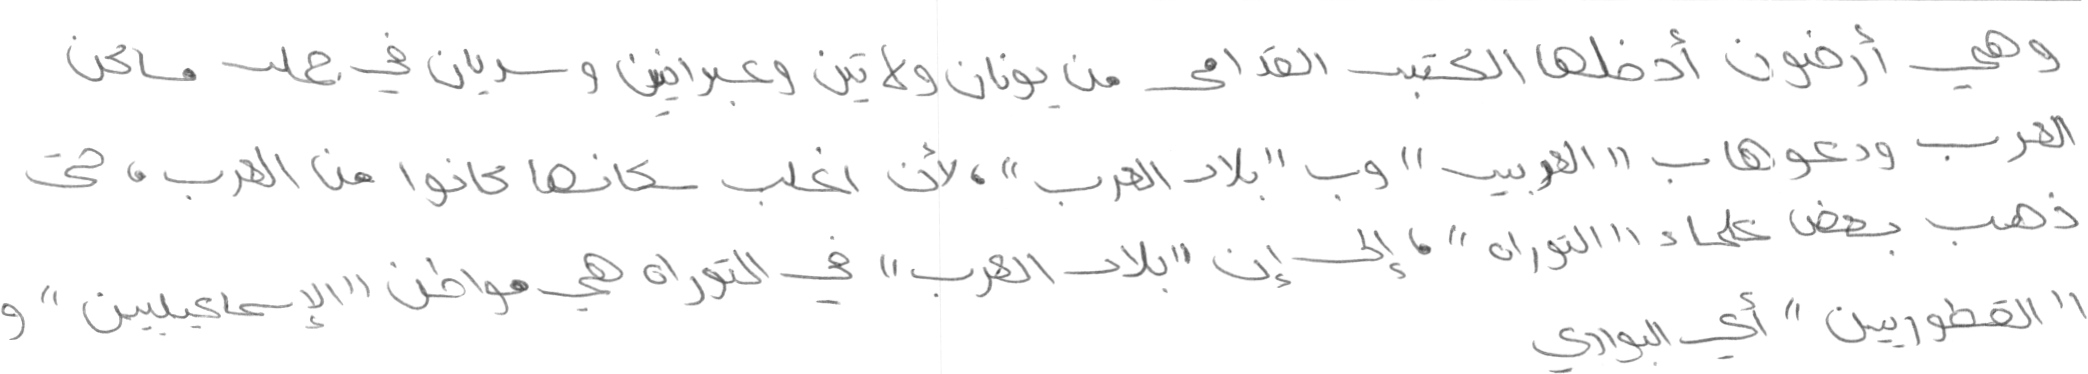 وهي أرضون أدخلها الكتبة القدامى من يونان ولاتين وعبرانيين وسريان في جملة مساكن
العرب ودعوها ب "العربية" وب "بلاد العرب"، لأن اغلب سكانها كانوا من العرب، حتى
ذهب بعض علماء "التوراه"، إلى إن "بلاد العرب" في التوراه هي مواطن "الإسماعيليين" و
"القطوريين" أي البوادي